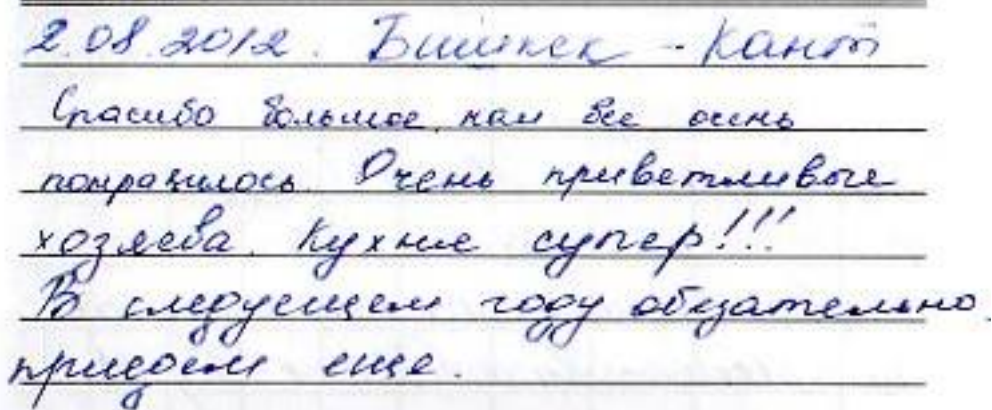 2.08.2012. Бишкек - Кант
Спасибо большое, нам все очень
понравилось. Очень приветливые
хозяева. Кухня супер!!!
В следующем году обязательно
приедем еще.